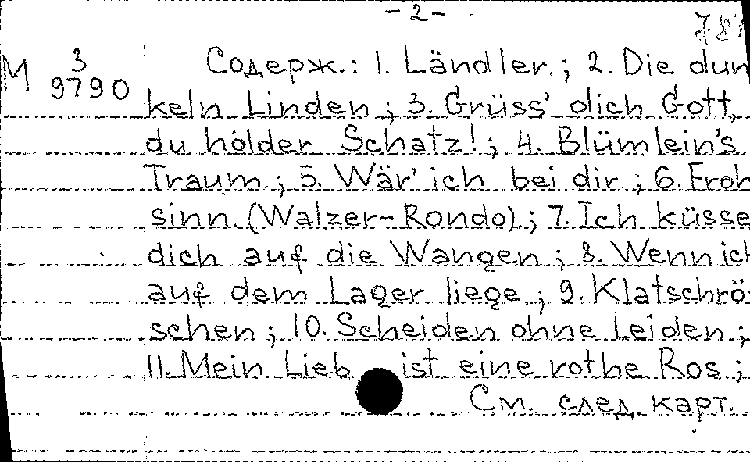 - 2 -
М 3 Содерж.: 1. Ländler.; 2. Die dun
9790
keln Linden; 3. Grüss' dich Gott,
du holder Schatz!; 4. Blümlein's
Traum; 5. Wär' ich bei dir; 6. Froh
sinn (Walzer-Rondo); 7. Ich küsse
dich auf die Wangen; 8. Wenn ich
auf dem Lager liege; 9. Klatschrö
schen; 10. Scheiden ohne Leiden;
11. Mein Lieb ist eine rothe Ros;
См. след. карт.